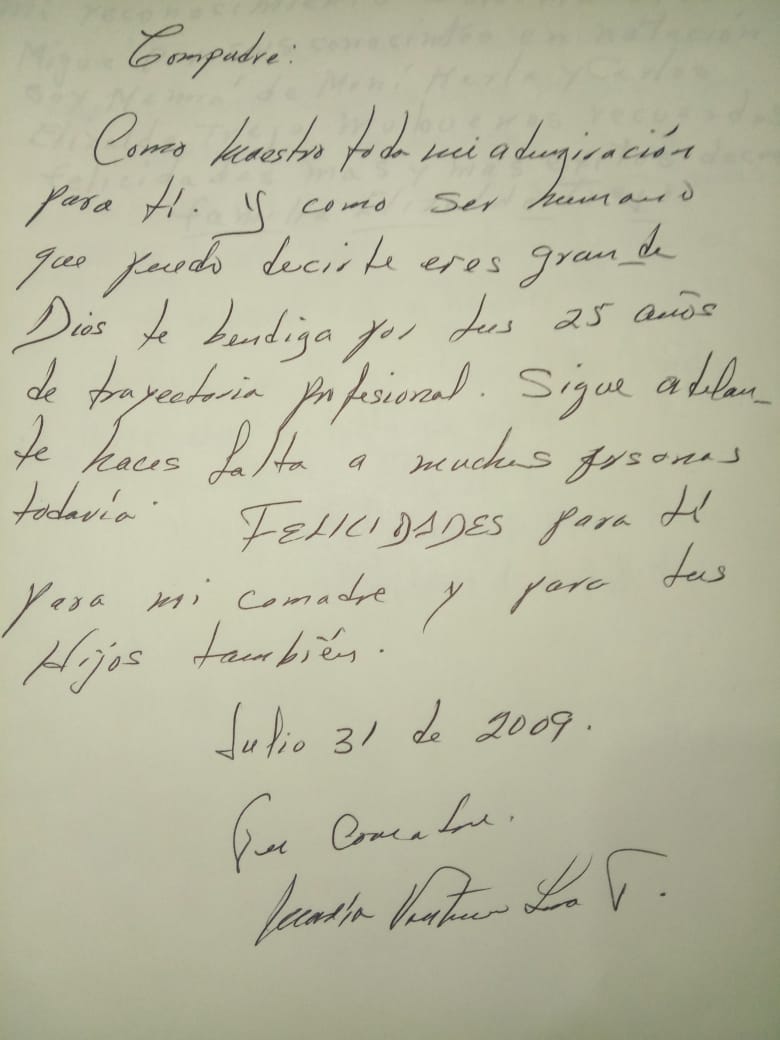 Compadre:
Como maestro toda mi admiración
para tí. Y como ser humano
que puedo decirte eres grande
Dios te bendiga por tus 25 años
de trayectoria profesional. Sigue adelan_
te haces falta a muchas personas
todavía. FELICIDADES para tí
para mi comadre y para tus
Hijos también.
Julio 31 de 2009.
Tu Comadre.
María T.